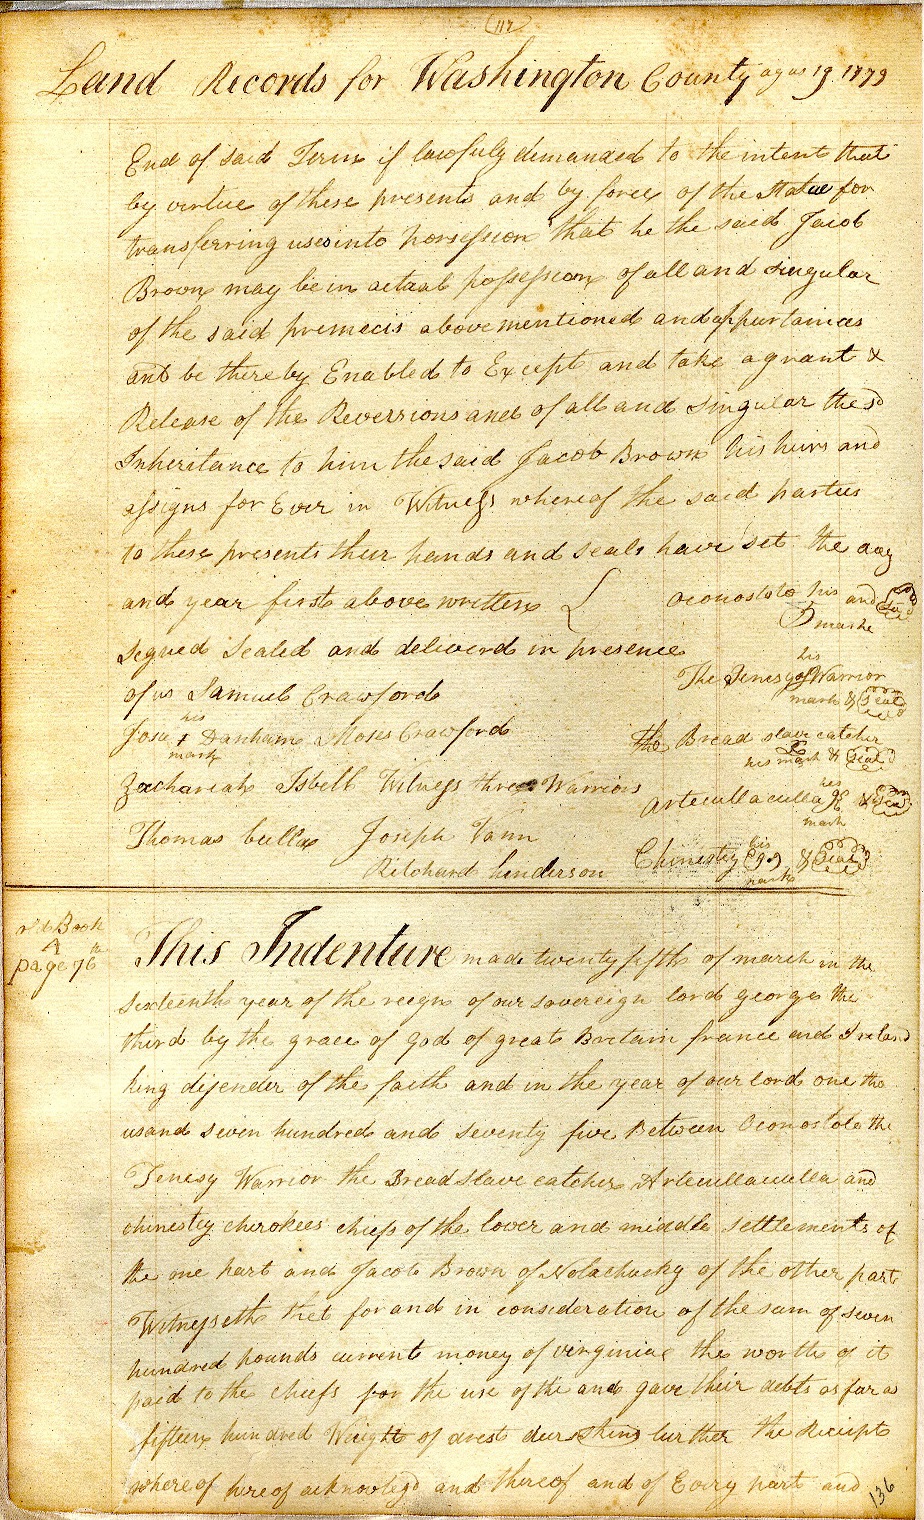 117
Land Records for Washington County agus 19. 1779
End of said Term if lawfuly demanded to the intent that
by virtue of these presents and by force of the Statue for
transferring uses into possession that he the said Jacob
Brown may be in actual possession of all and singular
of the said premecis above mentioned and appurtainces
and be thereby Enabled to Except and take a grant &
Release of the Reverrsions and of all and singular the sd
Inheritance to him the said Jacob Brown his hirs and
assigns for Ever in Witness whereof the said parties
to these presents their hands and seals have set the day
and year first above written
Oconostoto his and Seal
mark
Segned Sealed and deliverd in presence
of us Samuel Crawford
his
The Tenesy Warrior
mark & Seal
his
Josu x Danham Moses Crawford
mark
The Bread slave catcher
his mark & Seal
Zachariah Isbell Witness three Warriors
his
Artecullaculla & Seal
mark
Thomas bullar Joseph Vann
his
Chinestey & Seal
mark
Ritchard henderson
r'd Book
A
page 76th
This Indenture made twenty fifth of march in the
sixteenth year of the reegn of our sovereign lord george the
third by the grace of god of great Bretain france and Ireland
king difender of the faith and in the year of our lord one tho
usand seven hundred and seventy five Between Oconostoto the
Tenesy Warrior the Bread Slave catcher Artecullaculla and
chinestey cherokees chiefs of the lover and middle settlements of
the one part and Jacob Brown of Nolachucky of the other part
Witnesseth thet for and in consideration of the sum of seven
hundred pounds current money of virginiae the worth of it
paid to the chiefs for the use of the and gave their debts as far as
fifteen hundred Weight of drest deer skins further the Reciept
where of hereof acknowlegd and thereof and of Every part and
136